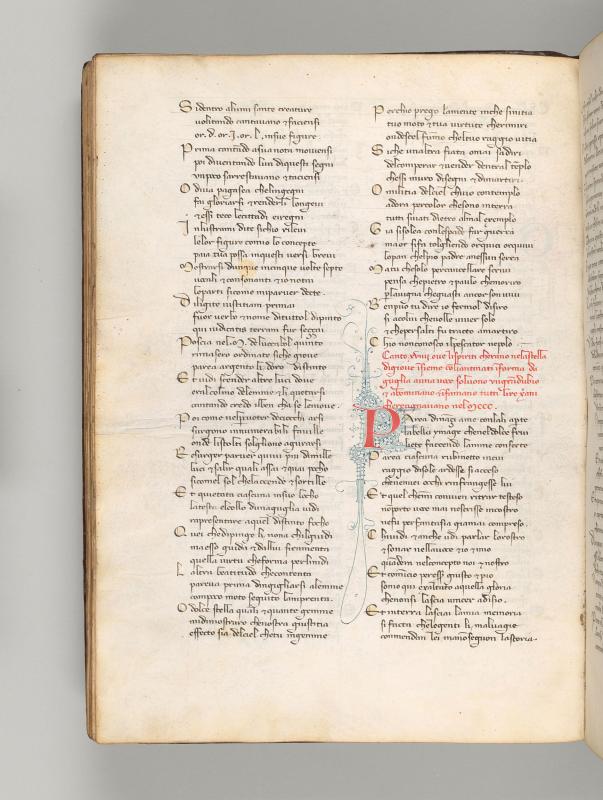 Si dentro alumi sante creature
volitando cantavano & faciensi
or .d. or .I. or .l. insue figure.
Prima cantando asua nota moviensi
poi diventando lun diquesti segni
un poco sarrestavano & taciensi
O diva pagasea chelingegni
fai gloriarsi & rendersi longevi
& essi teco lecittadi eiregni
Inlustrami dite sichio rilevi
lelor figure comio lo concepte
paia tua possa inquesti versi brevi
Mostrarsi dunque incinque volte septe
vocali & consonanti & io notai
leparti sicome miparver decte.
Diligite iustitiam primai
fuor verbo & nome dituttol dipinto
qui iudicatis terram fur seççai
Poscia nel .M. del vocabol quinto
rimasero ordinate siche giove
pareva argento li doro distinto
Et vidi scender altre luci dove
era il colmo delemme & li quetarsi
cantando credo il ben cha se lemove.
Poi come nel percuoter deciocchi arsi
surgono innumerabili faville
onde listolti sogliono agurarsi
Resurger parver quivi piu dimille
luci & salir quali assai & qua poco
sicomel sol chelaccende & sortille
Et quietata ciascuna insuo loco
latesta elcollo dunaguglia vidi
rapresentare aquel distinto foco
Quei chedipinge li nona chilguidi
ma esso guida & dallui sirammenta
quella virtu cheforma perlinidi
Laltra beatitudo checontenta
pareva prima dingigliarsi alemme
compoco moto seguito lamprenta.
O dolce stella quali & quante gemme
midimostraro chenostra giustitia
effecto sia delciel chetu ingemme
Perchio prego lamente inche sinitia
tuo moto & tua virtute cherimiri
ondescel fummo cheltuo raggio vitia
Siche unaltra fiata omai sadiri
delcomperar & vender dentral templo
chessi muro disegni & dimartiri
O militia delciel chuio contemplo
adora percolor chesono interra
tutti sviati dietro almal exemplo
Gia sisolea conlespade far guerra
ma or sifa togliendo orqui or quivi
lopan chelpio padre anessun serra
Ma tu chesolo percancellare scrivi
pensa chepietro & paulo chemoriro
perlavigna cheguasti ancor son vivi
Ben puoi tu dire io fermol disiro
si acolui chevolle viver solo
& chepersalti fu tracto amartiro
Chio nonconosco ilpescator nepolo
Canto xviiii ove lispiriti cherano nelastella
digiove insieme collaminati informa da
guglia anna voce solvono ungrandubio
& abominano & infamano tutti lire xpiani
cheregnavano nel MCCC.
Parea dinançi ame conlali aperte
labella ymage chenel dolce frui
liete faceano lanime conserte
Parea ciascuna rubinetto incui
raggio disole ardesse si acceso
chenemiei occhi rinfrangesse lui
Et quel chemi convien ritrar testeso
nonporto voce mai nescrisse incostro
nefu perfantasia giamai compreso.
Chiovidi & anche udi parlar lorostro
& sonar nellavoce & io & mio
quandera nelconcepto noi & nostro
Et comincio peresser giusto & pio
sono qui exaltato aquella gloria
chenonsi lascia vincer adisio.
Et interra lasciai lamia memoria
si facta chelegenti li malvage
commendan lei manonseguon lastoria.